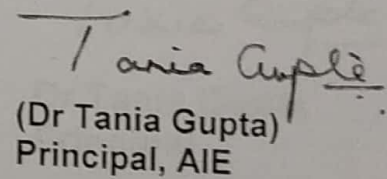 Tania Gupta
(Dr Tania Gupta)
Principal, AIE